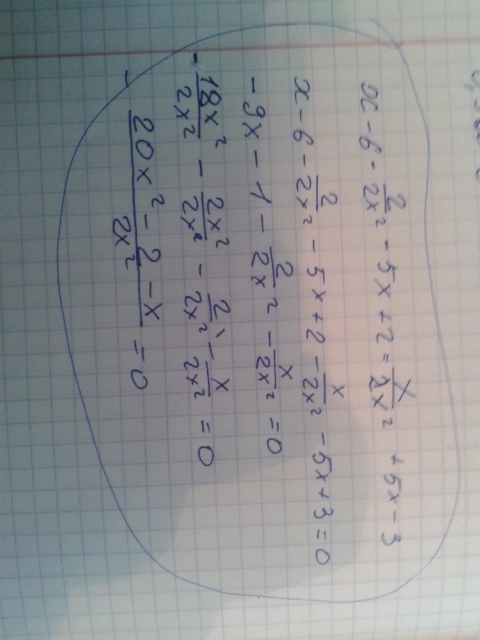 x - 6 - 2/2x² - 5x + 2 = x/2x² + 5x - 3
x - 6 - 2/2x² - 5x + 2 - x/2x² - 5x + 3 = 0
- 9x - 1 - 2/2x² - x/2x² = 0
- 18x²/2x² - 2x²/2x² - 2/2x² - x/2x² = 0
- 20x² - 2 - x/2x² = 0